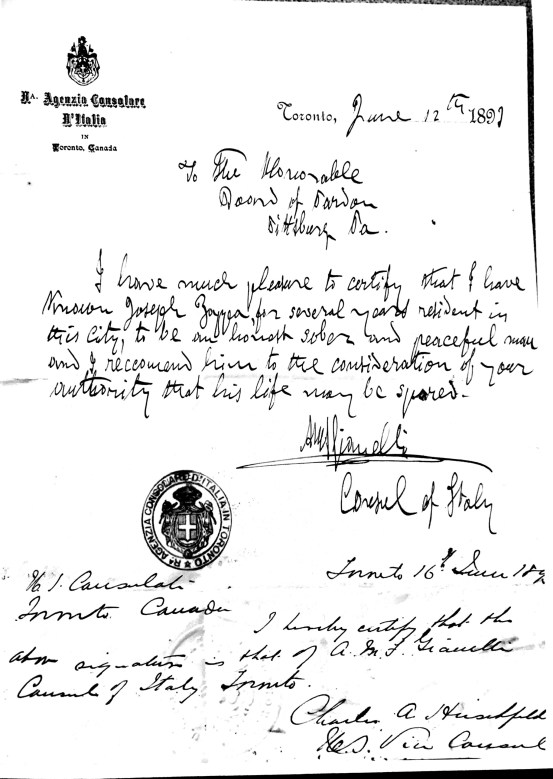 Rª. Agenzia Consolare
D'Italia
IN
Toronto, Canada
Toronto, June 12th 189
To The Honorable
Board of Pardon
Pittsburg Pa.
I have much pleasure to certify that I have
Known Joseph Zappa for several years resident in
this City, to be an honest sober and peaceful man
and I reccomend him to the consideration of your
authority that his life may be spared.
Gianelli
Consul of Italy
Rª AGENZIA CONSOLARE D'ITALIA IN TORONTO
Toronto 16th June 189
U.S. Consulate
Toronto Canada
I hereby certify that the
above signature is that of A. M. F. Gianelli
Consul of Italy Toronto.
Charles A Hirschfeld
U.S. Vice Consul